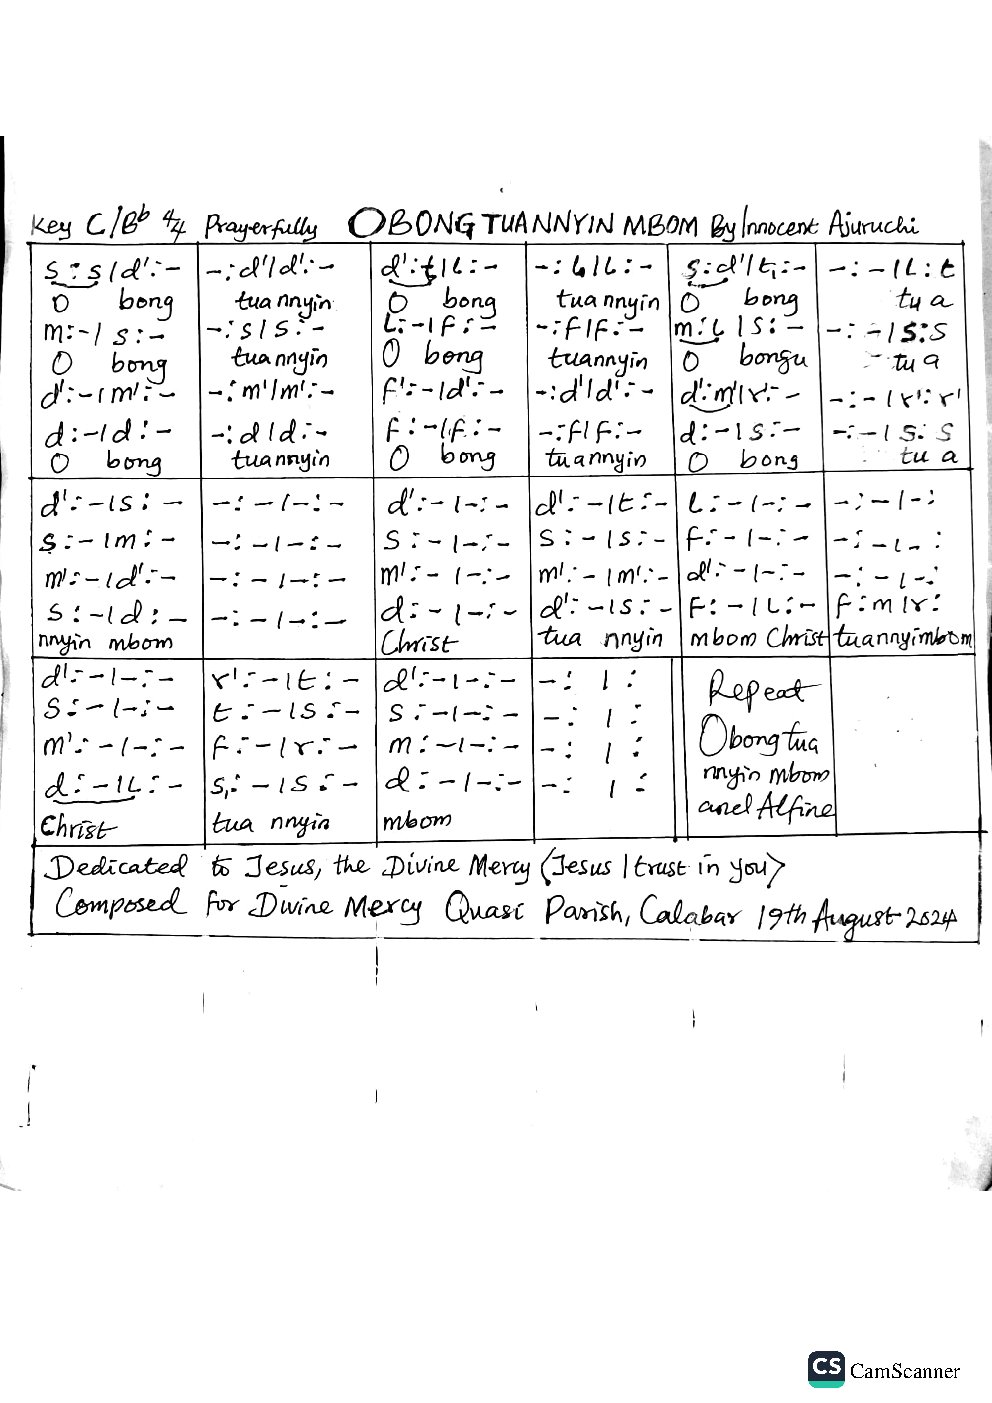 Key C/Bb 4/4 Prayerfully OBONG TUANNYIN MBOM By Innocent Ajuruchi
s:s/d':- -:d'/d':- d':t/L:- -:L/L:- s:d'/t,:- -:-/L:t
O bong tuannyin O bong tuannyin O bong tu a
m:-/s:- -:s/s:- L:-/f:- -:f/f:- m:L/s:- -:-/s:s
O bong tuannyin O bong tuannyin O bongu tu a
d':-/m':- -:m'/m':- f':-/d':- -:d'/d':- d':m'/r':- -:-/r':r'
d:-/d:- -:d/d:- f:-/f:- -:f/f:- d:-/s:- -:-/s:s
O bong tuannyin O bong tuannyin O bong tu a
d':-/s:- -:-/-:- d':-/-:- d':-/t:- L:-/-:- -:-/-:
s:-/m:- -:-/-:- s:-/-:- s:-/s:- f:-/-:- -:-/-:
m':-/d':- -:-/-:- m':-/-:- m':-/m':- d':-/-:- -:-/-:
s:-/d:- -:-/-:- d:-/-:- d':-/s:- f:-/L:- f:m/r:
nnyin mbom Christ tua nnyin mbom Christ tuannyimbom
d':-/-:- r':-/t:- d':-/-:- -: / : Repeat
s:-/-:- t:-/s:- s:-/-:- -: / :
m':-/-:- f:-/r:- m:-/-:- -: / : Obong tua
d:-/L:- s,:-/s:- d:-/-:- -: / : nnyin mbom
and Alfine
Christ tua nnyin mbom
Dedicated to Jesus, the Divine Mercy (Jesus I trust in you)
Composed for Divine Mercy Quasi Parish, Calabar 19th August 2024
CS CamScanner